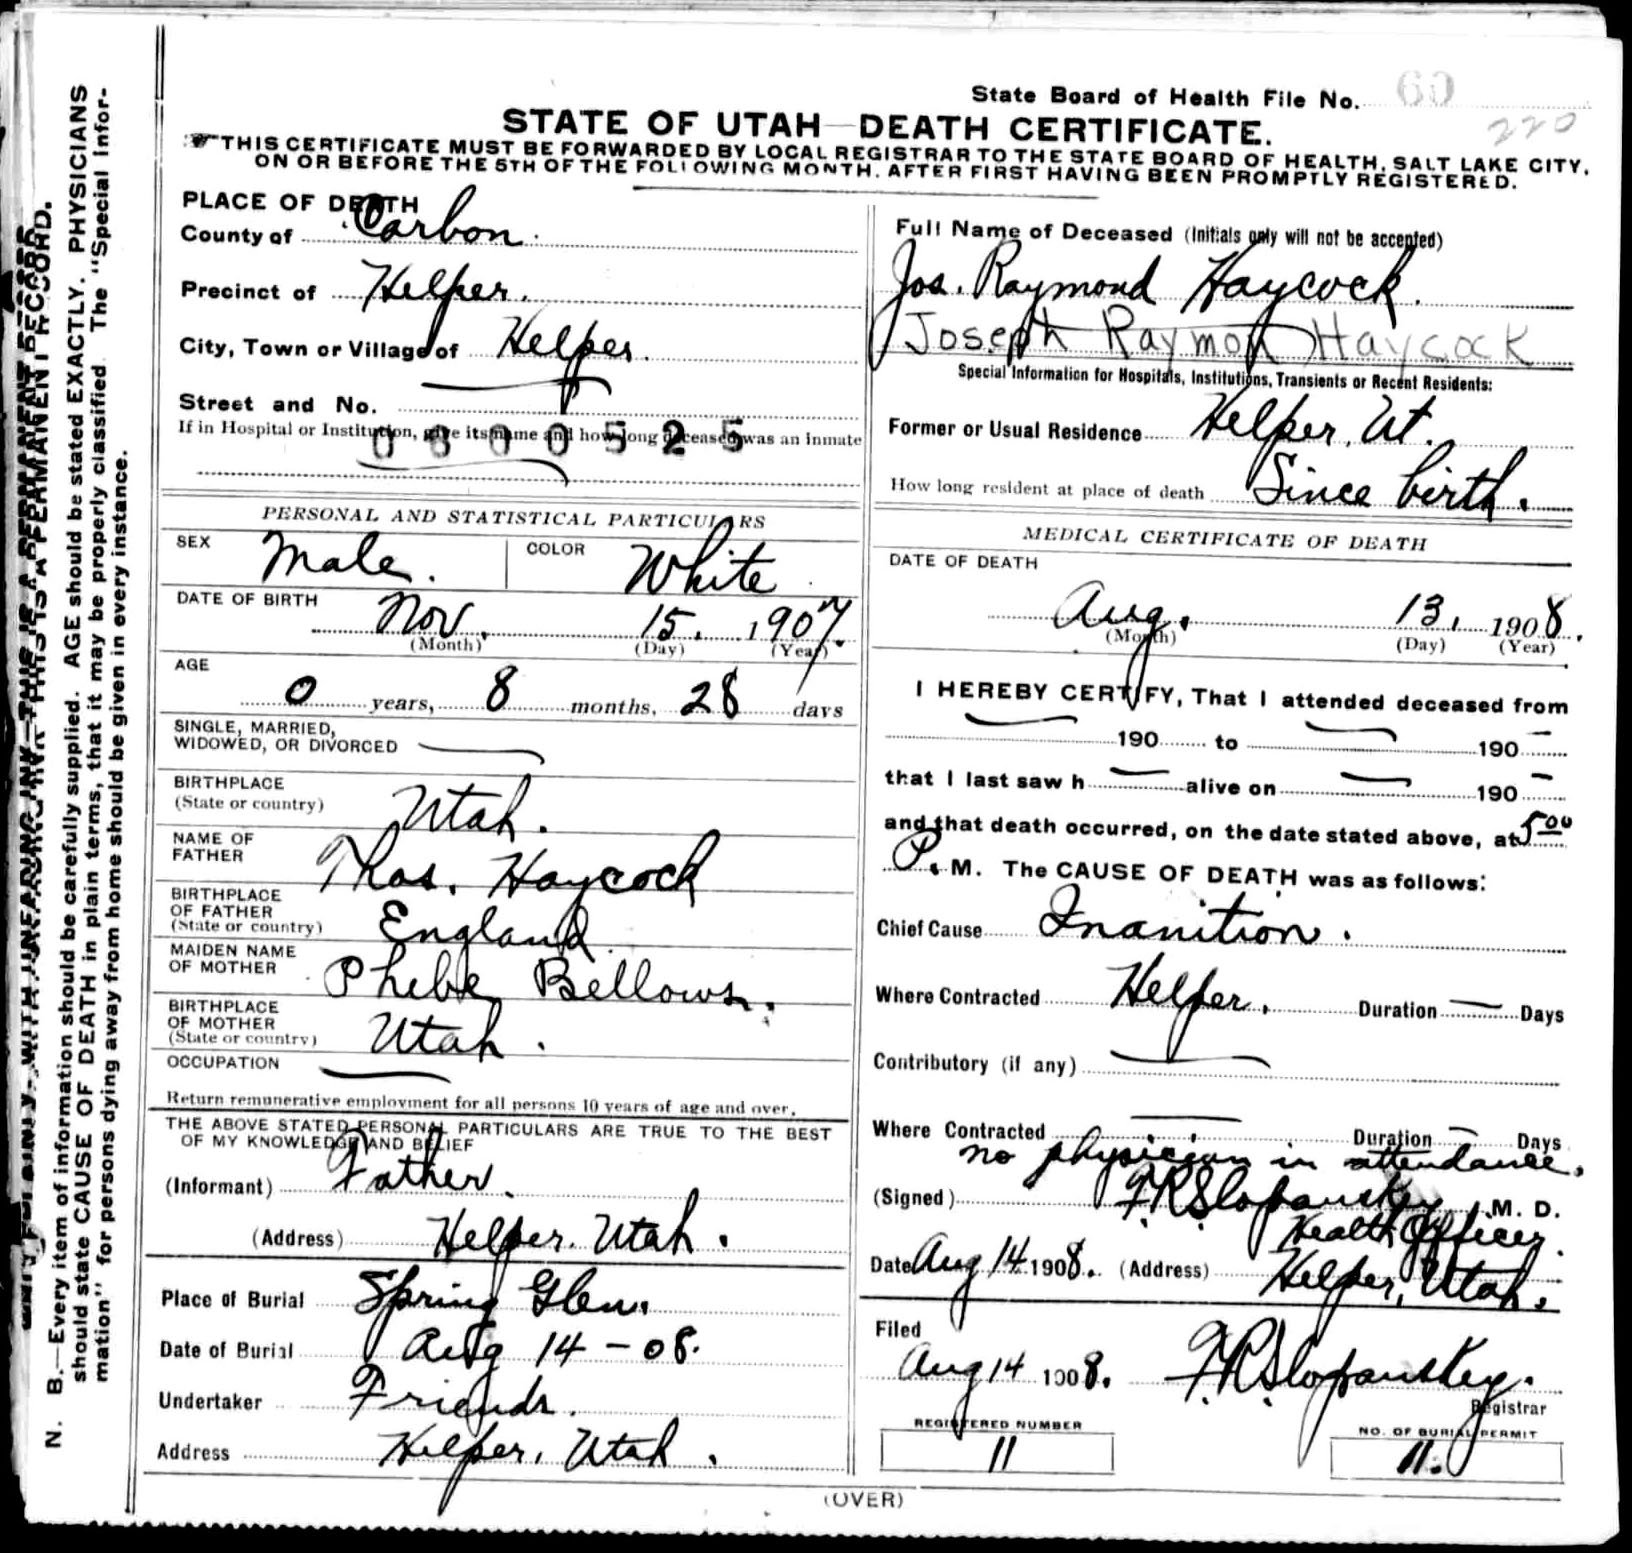 State Board of Health File No. 60
220
STATE OF UTAH—DEATH CERTIFICATE.
THIS CERTIFICATE MUST BE FORWARDED BY LOCAL REGISTRAR TO THE STATE BOARD OF HEALTH, SALT LAKE CITY,
ON OR BEFORE THE 5TH OF THE FOLLOWING MONTH, AFTER FIRST HAVING BEEN PROMPTLY REGISTERED.
PLACE OF DEATH
County of Carbon.
Precinct of Helper.
City, Town or Village of Helper.
Street and No.
If in Hospital or Institution, give its name and how long deceased was an inmate
0800525
PERSONAL AND STATISTICAL PARTICULARS
SEX Male. COLOR White
DATE OF BIRTH Nov. 15. 1907.
(Month) (Day) (Year)
AGE
0 years, 8 months, 28 days
SINGLE, MARRIED,
WIDOWED, OR DIVORCED
BIRTHPLACE
(State or country) Utah.
NAME OF
FATHER Thos. Haycock
BIRTHPLACE
OF FATHER
(State or country) England
MAIDEN NAME
OF MOTHER Phebe Bellows.
BIRTHPLACE
OF MOTHER
(State or country) Utah.
OCCUPATION
Return remunerative employment for all persons 10 years of age and over.
THE ABOVE STATED PERSONAL PARTICULARS ARE TRUE TO THE BEST
OF MY KNOWLEDGE AND BELIEF
(Informant) Father.
(Address) Helper. Utah.
Place of Burial Spring Glen.
Date of Burial Aug 14 - 08.
Undertaker Friends.
Address Helper, Utah.
Full Name of Deceased (Initials only will not be accepted)
Jos. Raymond Haycock.
Joseph Raymon Haycock
Special Information for Hospitals, Institutions, Transients or Recent Residents:
Former or Usual Residence Helper, Ut.
How long resident at place of death Since birth.
MEDICAL CERTIFICATE OF DEATH
DATE OF DEATH
Aug. 13, 1908.
(Month) (Day) (Year)
I HEREBY CERTIFY, That I attended deceased from
190 to 190
that I last saw h alive on 190
and that death occurred, on the date stated above, at 5 00
P. M. The CAUSE OF DEATH was as follows:
Chief Cause Inanition.
Where Contracted Helper. Duration — Days
Contributory (if any)
Where Contracted Duration — Days
no physician in attendance.
(Signed) F.R. Slopanskey M. D.
Health Officer.
Date Aug 14 1908. (Address) Helper, Utah.
Filed
Aug 14 1908. F.R. Slopanskey.
Registrar
REGISTERED NUMBER
11
NO. OF BURIAL PERMIT
11.
(OVER)
N. B.—Every item of information should be carefully supplied. AGE should be stated EXACTLY. PHYSICIANS
should state CAUSE OF DEATH in plain terms, that it may be properly classified. The "Special Infor-
mation" for persons dying away from home should be given in every instance.